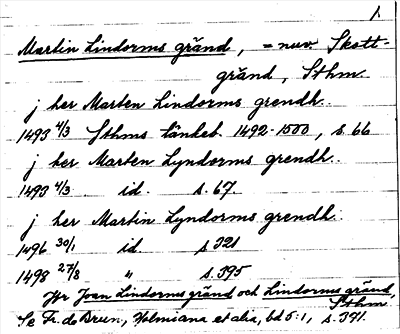 1.
Martin Lindorms gränd, = nuv. Skott-
gränd, Sthm.
j her Marten Lindorms grendh.
1493 4/3 Sthms tänkeb. 1492-1500, s. 66
j her Marten Lyndorms grendh.
1493 4/3 id. s. 67.
j her Martin Lyndorms grendh.
1496 30/1 id. s 321
1498 27/8 " s. 395
Jfr Joan Lindorms gränd och Lindorms gränd,
Sthm.
Se Fr. de Brun, Holmiana et alia, bd 5:1, s. 391.